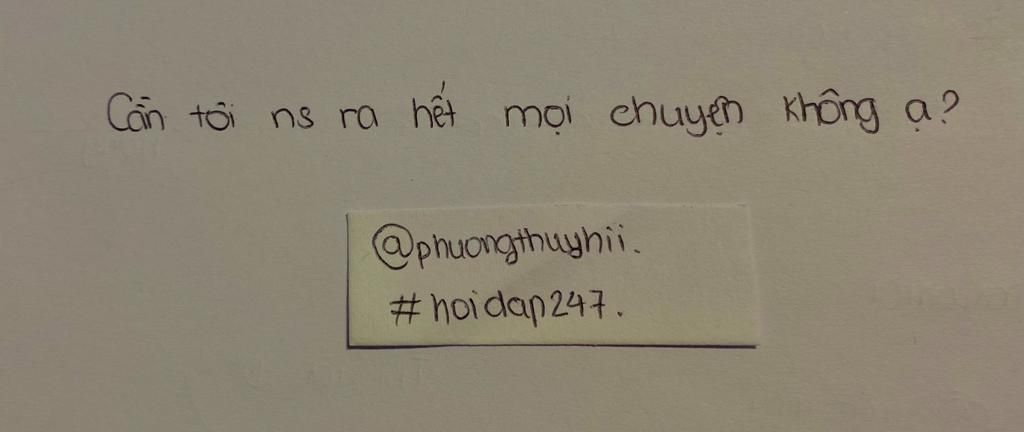 Cần tôi ns ra hết mọi chuyện không ạ?
@phuongthuyhii.
#hoidap247.